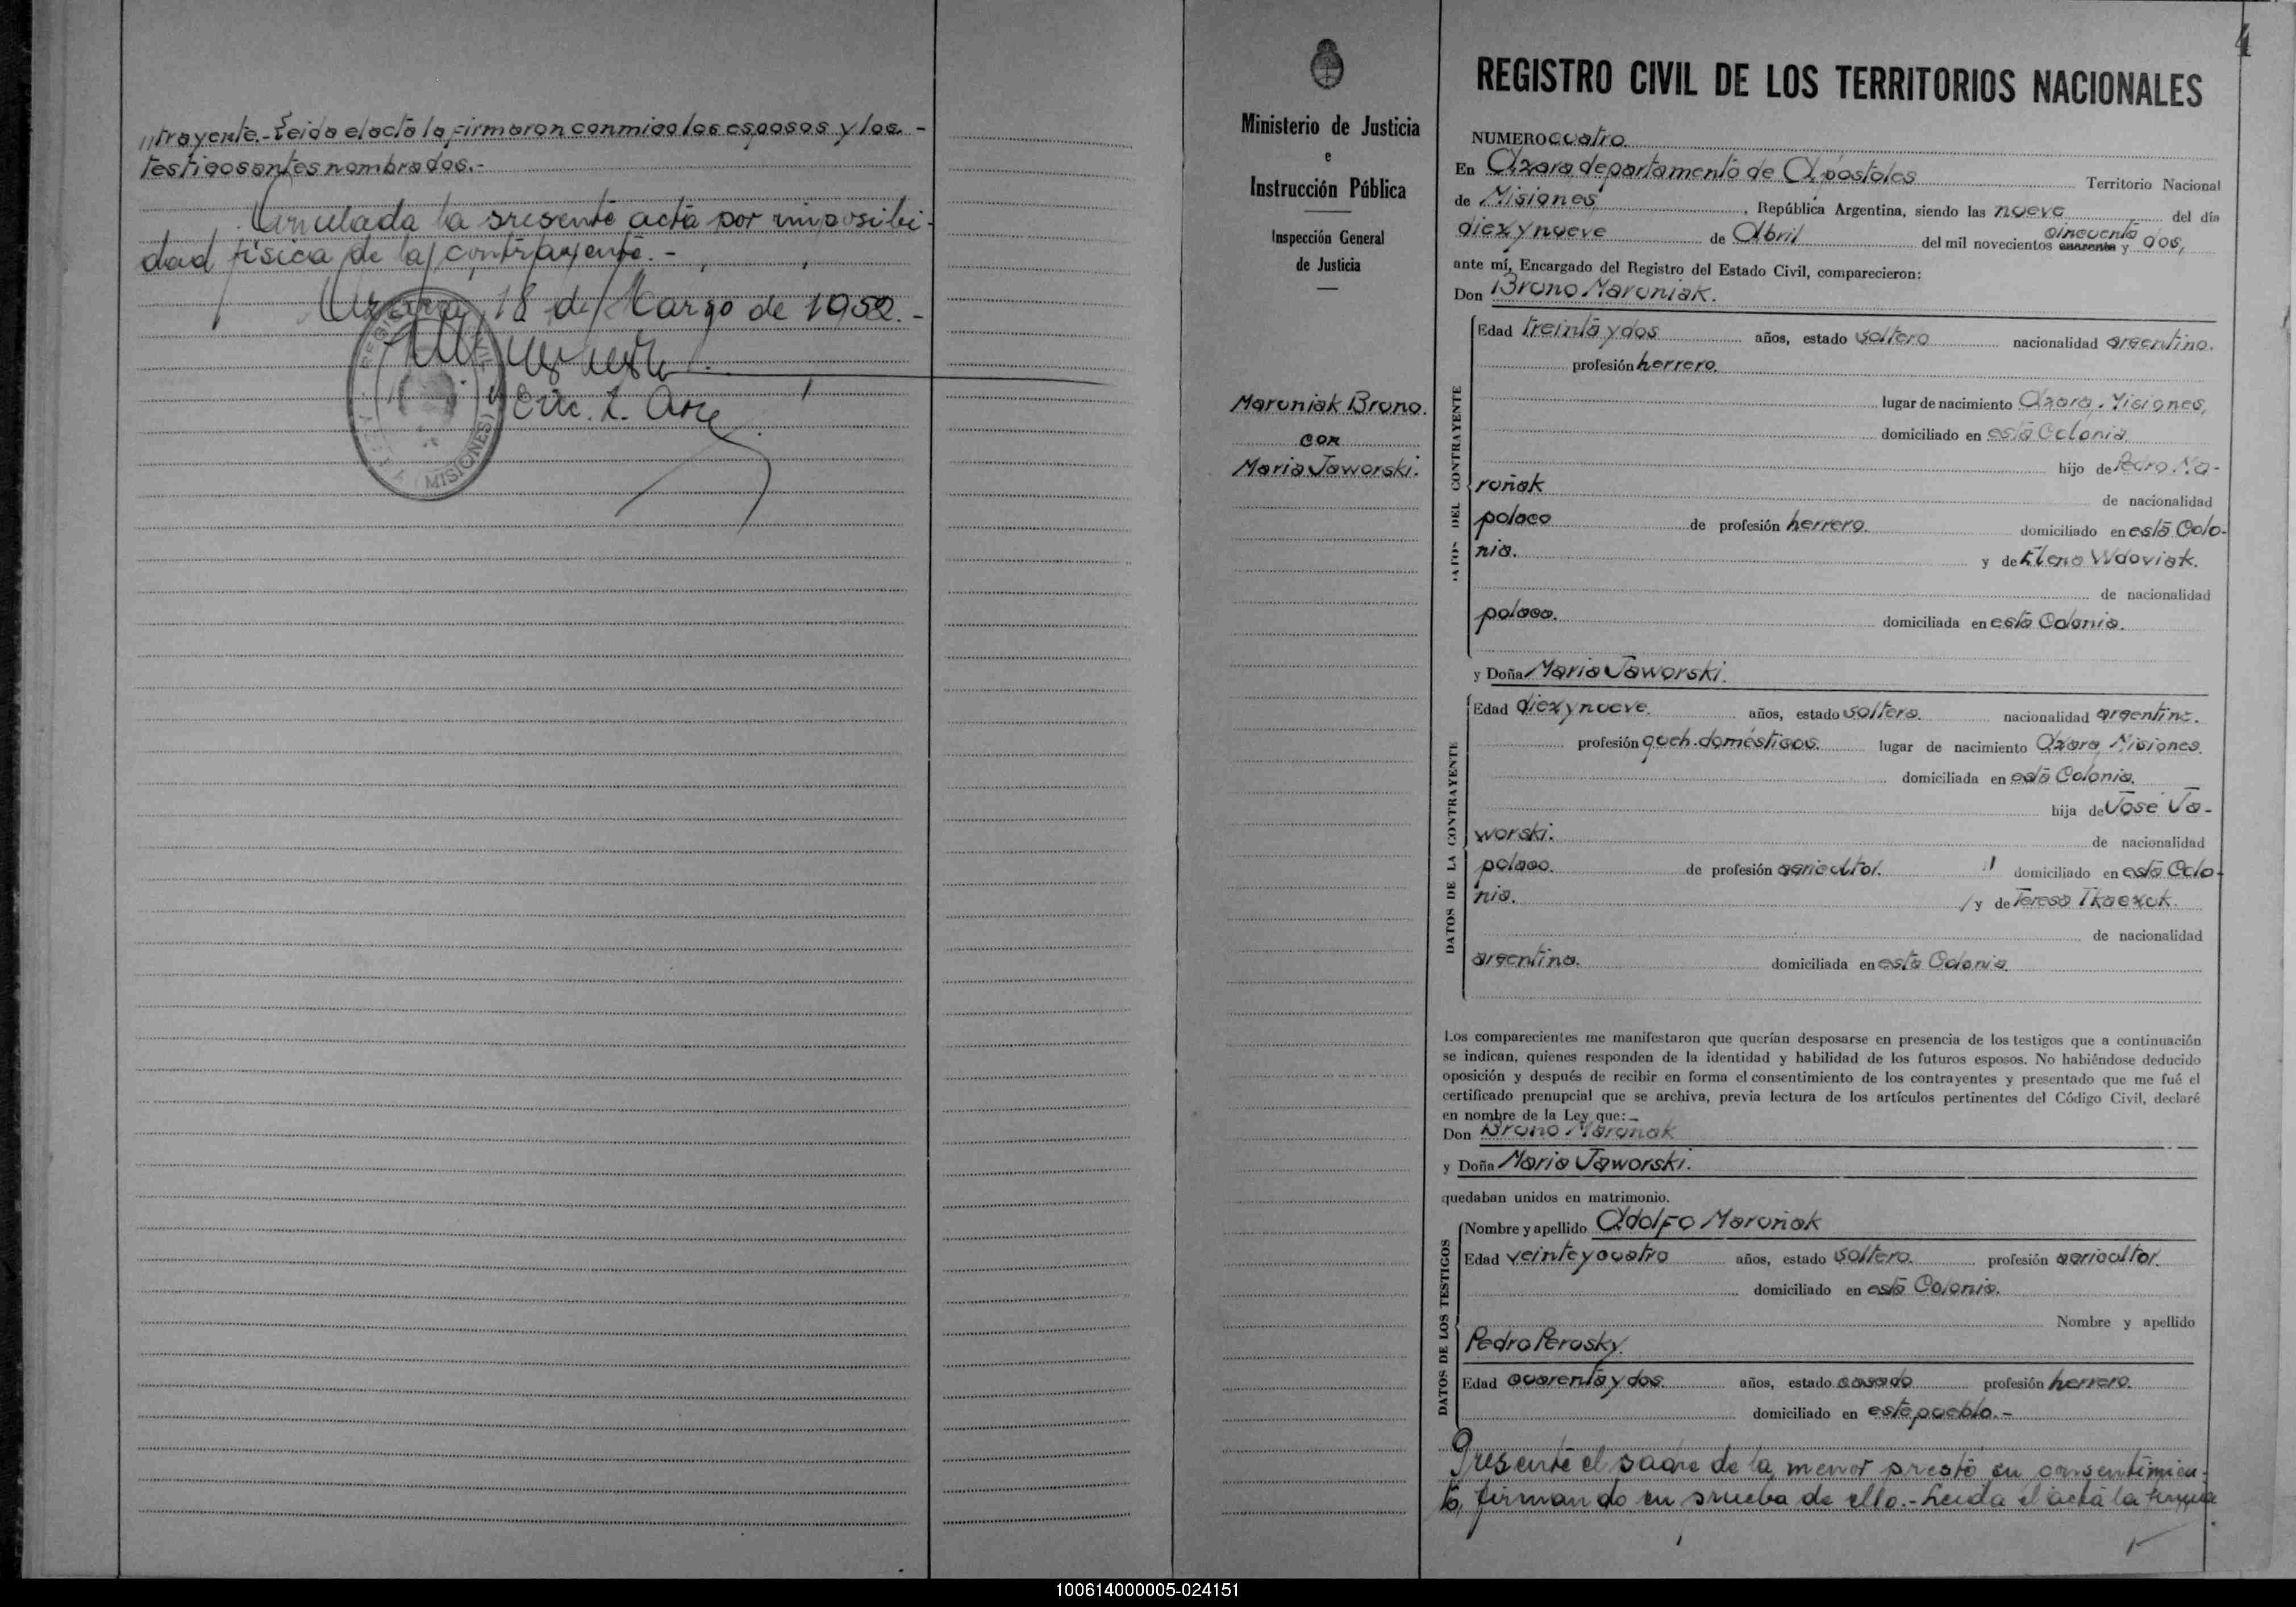 trayente.- Leida el acta la firmaron conmigo los esposos y los -
testigos antes nombrados.-
Anulada la presente acta por imposibi-
dad fisica de la contrayente.-
Azara, 18 de Marzo de 1952.-
Enc.
MISIONES
4
Ministerio de Justicia
e
Instrucción Pública
Inspección General
de Justicia
Maruniak Bruno.
con
Maria Jaworski.
REGISTRO CIVIL DE LOS TERRITORIOS NACIONALES
NUMERO cuatro
En Azara departamento de Apóstoles Territorio Nacional
de Misiones, República Argentina, siendo las nueve del día
diez y nueve de Abril del mil novecientos cuarenta cincuenta y dos,
ante mí, Encargado del Registro del Estado Civil, comparecieron:
Don Bruno Maruniak.
DATOS DEL CONTRAYENTE
Edad treinta y dos años, estado soltero nacionalidad argentino.
profesión herrero.
lugar de nacimiento Azara, Misiones,
domiciliado en esta Colonia
hijo de Pedro Ma-
ruñak de nacionalidad
polaco de profesión herrero. domiciliado en esta Colo-
nia. y de Elena Wdoviak.
de nacionalidad
polaca. domiciliada en esta Colonia.
y Doña Maria Jaworski.
DATOS DE LA CONTRAYENTE
Edad diez y nueve. años, estado soltera. nacionalidad argentina.
profesión queh. domésticos. lugar de nacimiento Azara, Misiones.
domiciliada en esta Colonia.
hija de José Ja-
worski. de nacionalidad
polaco. de profesión agricultor. domiciliado en esta Colo-
nia. y de Teresa Tkaczuk.
de nacionalidad
argentina. domiciliada en esta Colonia.
Los comparecientes me manifestaron que querían desposarse en presencia de los testigos que a continuación
se indican, quienes responden de la identidad y habilidad de los futuros esposos. No habiéndose deducido
oposición y después de recibir en forma el consentimiento de los contrayentes y presentado que me fué el
certificado prenupcial que se archiva, previa lectura de los artículos pertinentes del Código Civil, declaré
en nombre de la Ley que:
Don Bruno Maruñak
y Doña Maria Jaworski.
quedaban unidos en matrimonio.
DATOS DE LOS TESTIGOS
Nombre y apellido Adolfo Maruñak
Edad veinte y cuatro años, estado soltero. profesión agricultor.
domiciliado en esta Colonia.
Nombre y apellido
Pedro Perosky.
Edad cuarenta y dos. años, estado casado profesión herrero.
domiciliado en este pueblo.-
Presente el padre de la menor prestó su consentimien-
to, firmando en prueba de ello.- Leida el acta la
100614000005-024151